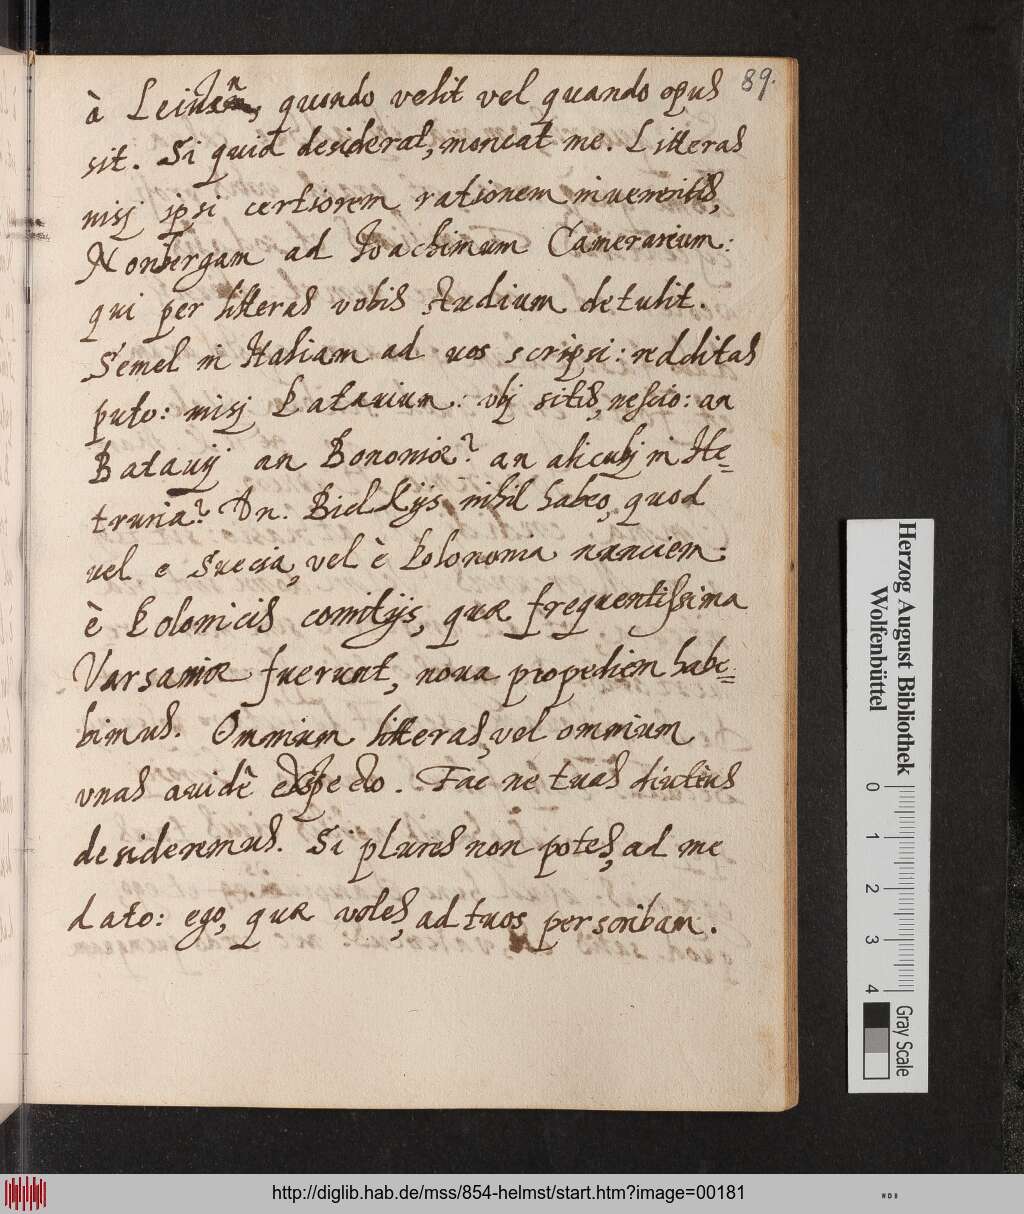 89.
à quando velit vel quando opus
sit. Si quid desiderat, moneat me. Litteras
nisj ipsi certiorem rationem inveneritis,
Noribergam ad Joachimum Camerarium:
qui per litteras vobis studium detulit.
Semel in Italiam ad vos scripsi: redditas
puto: nisj Patavium: vbj sitis, nescio: an
Patavij an Bononiæ? an alicubj in He=
truria? Dn. Bielskijs nihil habeo, quod
vel e Suecia, vel è Polononia nunciem:
è Polonicis comitijs, quæ frequentissima
Varsaviæ fuerunt, nova propediem habe=
bimus. Omnium litteras, vel omnium
vnas avidè expecto. Fac ne tuas diutius
desideremus. Si plures non potes, ad me
dato: ego, quæ voles, ad tuos perscribam.
Herzog August Bibliothek
Wolfenbüttel
0 1 2 3 4
Gray Scale
http://diglib.hab.de/mss/854-helmst/start.htm?image=00181